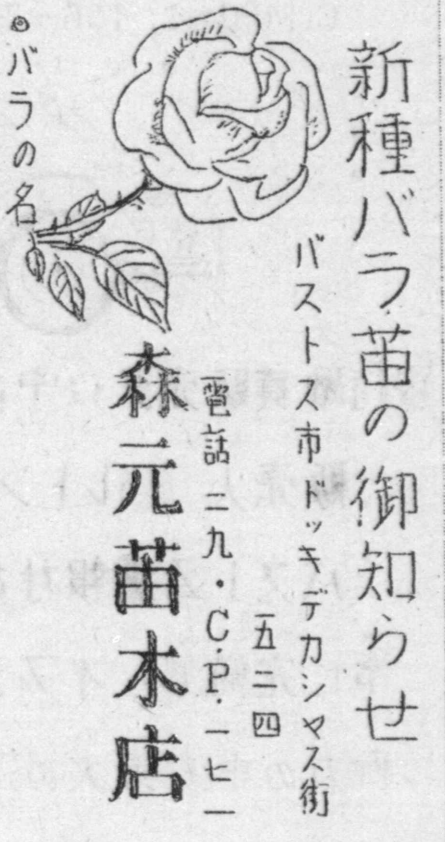 新種バラ苗の御知らせ
バストス市ドッキデカシヤス街
五二四
電話二九・C.P.一七一
森元苗木店
◎バラの名